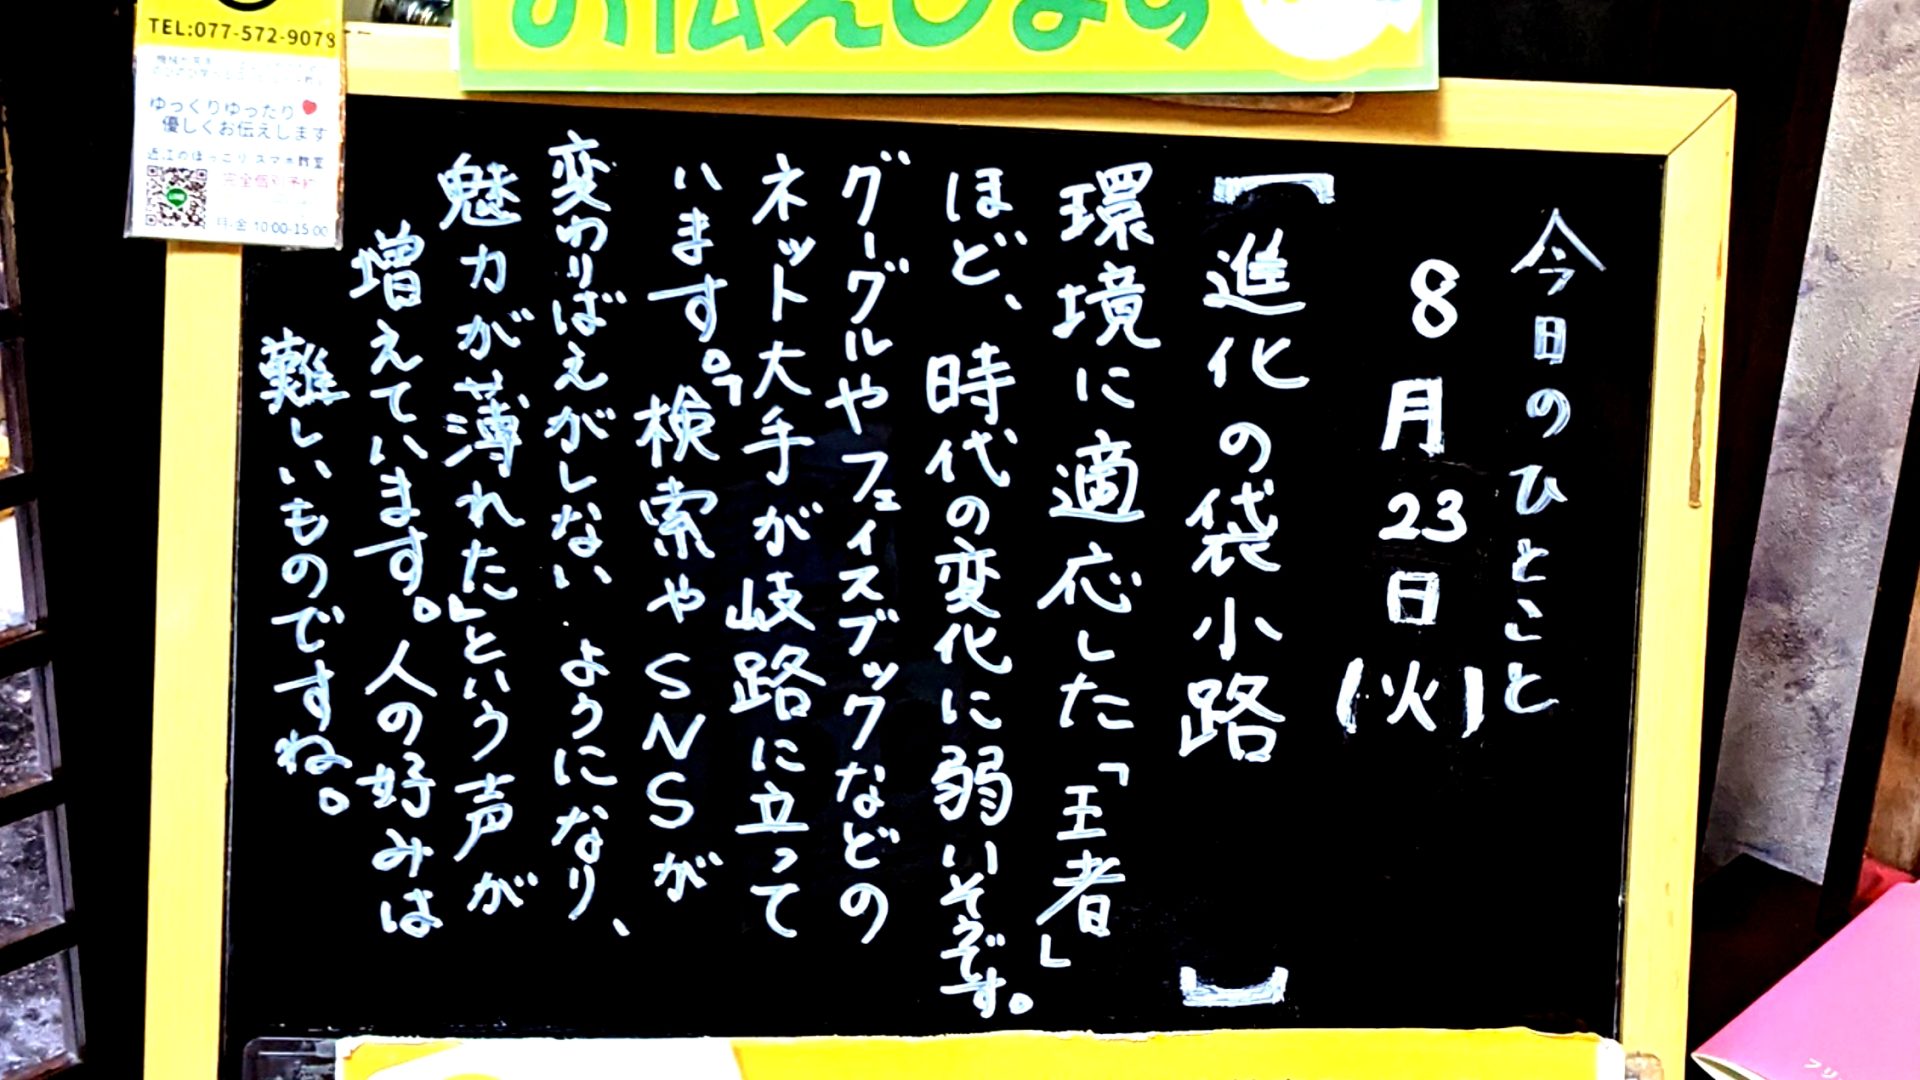 お伝えします
TEL:077-572-9078
ゆっくりゆったり
優しくお伝えします
近江のほっこりスマホ教室
完全個別予約
月-金 10:00-15:00
今日のひとこと
8月23日(火)
[進化の袋小路]
環境に適応した「王者」
ほど、時代の変化に弱いそうです。
グーグルやフェイスブックなどの
ネット大手が岐路に立って
います。「検索やSNSが
変わりばえがしないようになり、
魅力が薄れた」という声が
増えています。人の好みは
難しいものですね。
フリ